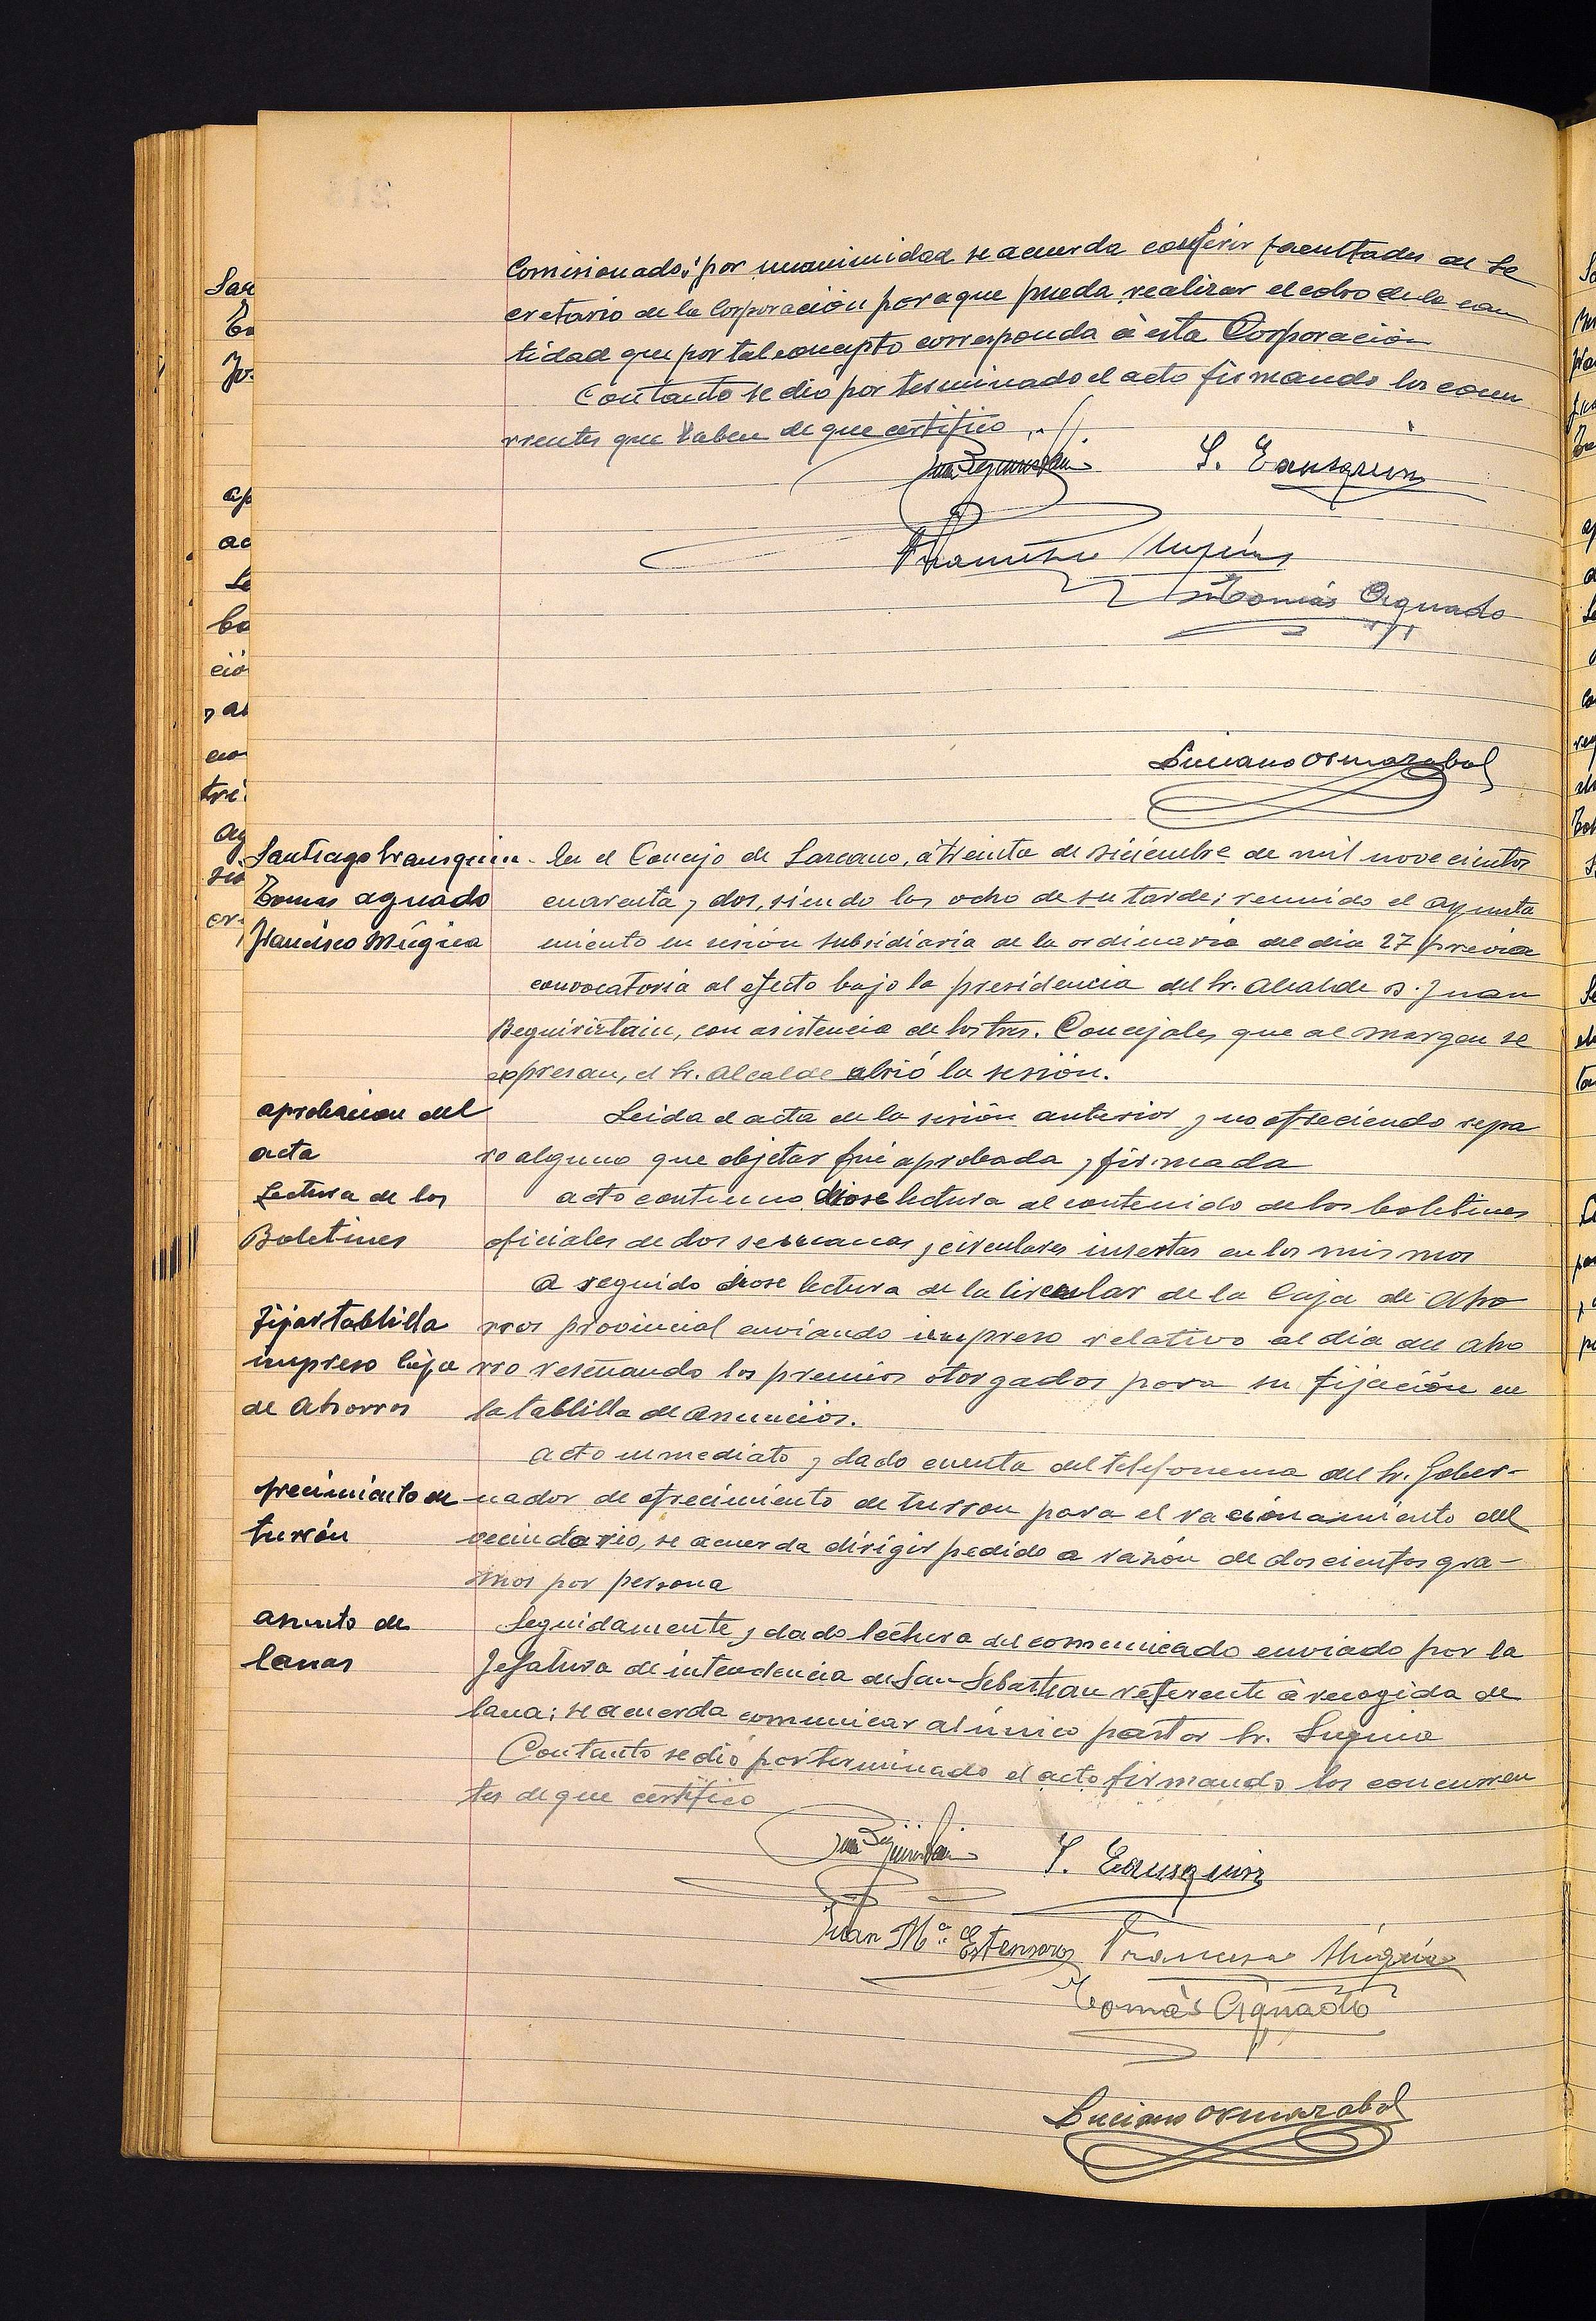 Comisionado; por unanimidad se acuerda conferir facultades al Se
cretario de la Corporación para que pueda realizar el cobro de la can
tidad que por tal concepto corresponda à esta Corporación
Con tanto se dio por terminado el acto firmando los concu
rrentes que saben de que certifico
S. Eausquin
Francisco Mujica
Tomás Aguado
Luciano Ormazabal
Santiago Irausquin
Tomas aguado
Francisco Múgica
En el Concejo de Lazcano, à treinta de Diciembre de mil novecientos
cuarenta y dos, siendo las ocho de su tarde; reunido el ayunta
miento en sesión subsidiaria de la ordinaria del dia 27 previa
convocatoria al efecto bajo la presidencia del Sr. Alcalde D. Juan
Beguiristain, con asistencia de los tres. Concejales que al margen se
expresan, el Sr. Alcalde abrió la sesión.
aprobacion del
acta
Leida el acta de la sesión anterior y no ofreciendo repa
ro alguno que objetar fué aprobada y firmada
Lectura de los
Boletines
acto continuo diose lectura al contenido de los boletines
oficiales de dos semanas y circulares insertas en los mismos
Fijar tablilla
impreso Caja
de Ahorros
A seguido diose lectura de la Circular de la Caja de Aho
rros provincial enviando impreso relativo al dia del Aho
rro reseñando los premios otorgados para su fijación en
la tablilla de anuncios.
ofrecimiento de
turrón
acto inmediato y dado cuenta del telefonema del Sr. Gober-
nador de ofrecimiento de turron para el racionamiento del
vecindario, se acuerda dirigir pedido a razón de doscientos gra-
mos por persona
asunto de
lanas
Seguidamente y dado lectura del comunicado enviado por la
Jefatura de intendencia de San Sebastian referente à recogida de
lana; se acuerda comunicar al único pastor Sr.
Con tanto se dio por terminado el acto firmando los concurren
tes de que certifico
S. Eausquin
Juan Mª Estensoro
Francisco Múgica
Tomàs Aguado
Luciano Ormazabal